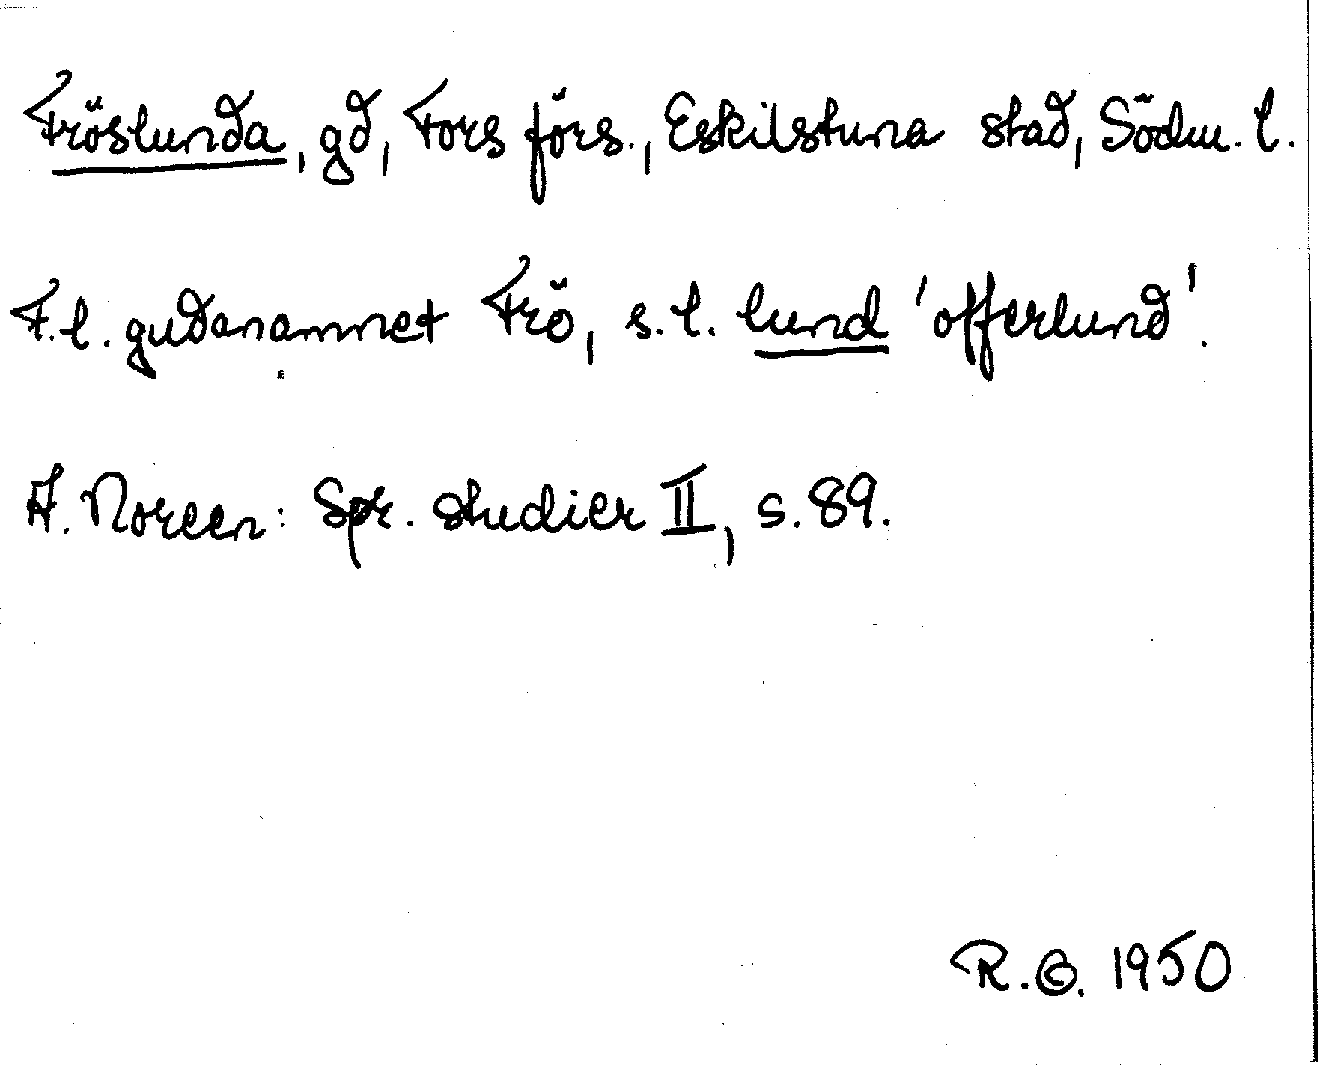 Fröslunda, gd, Fors förs., Eskilstuna stad, Södm. l.
F.l. gudanamnet Frö, s.l. lund 'offerlund'.
A. Noreen: Spr. studier II, s. 89.
R. 1950